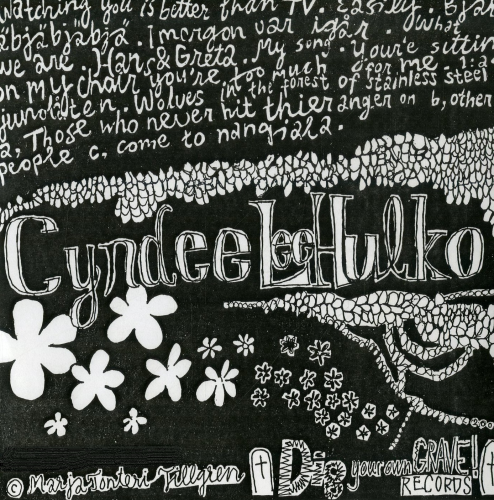 watching you is better than TV. Easily. Bjab
jábjábjábjá. I morgon var igår. What
we are. Hans & Greta. My song. You're sittin
on my chair you're too much for me. 1:a
Wolves in the forest of stainless steel
a, Those who never hit thier anger on b, other
people c, come to nangijala.
Cyndee Lee Hulko
Dig your own GRAVE!
RECORDS
© Marja Tontori Tillgren